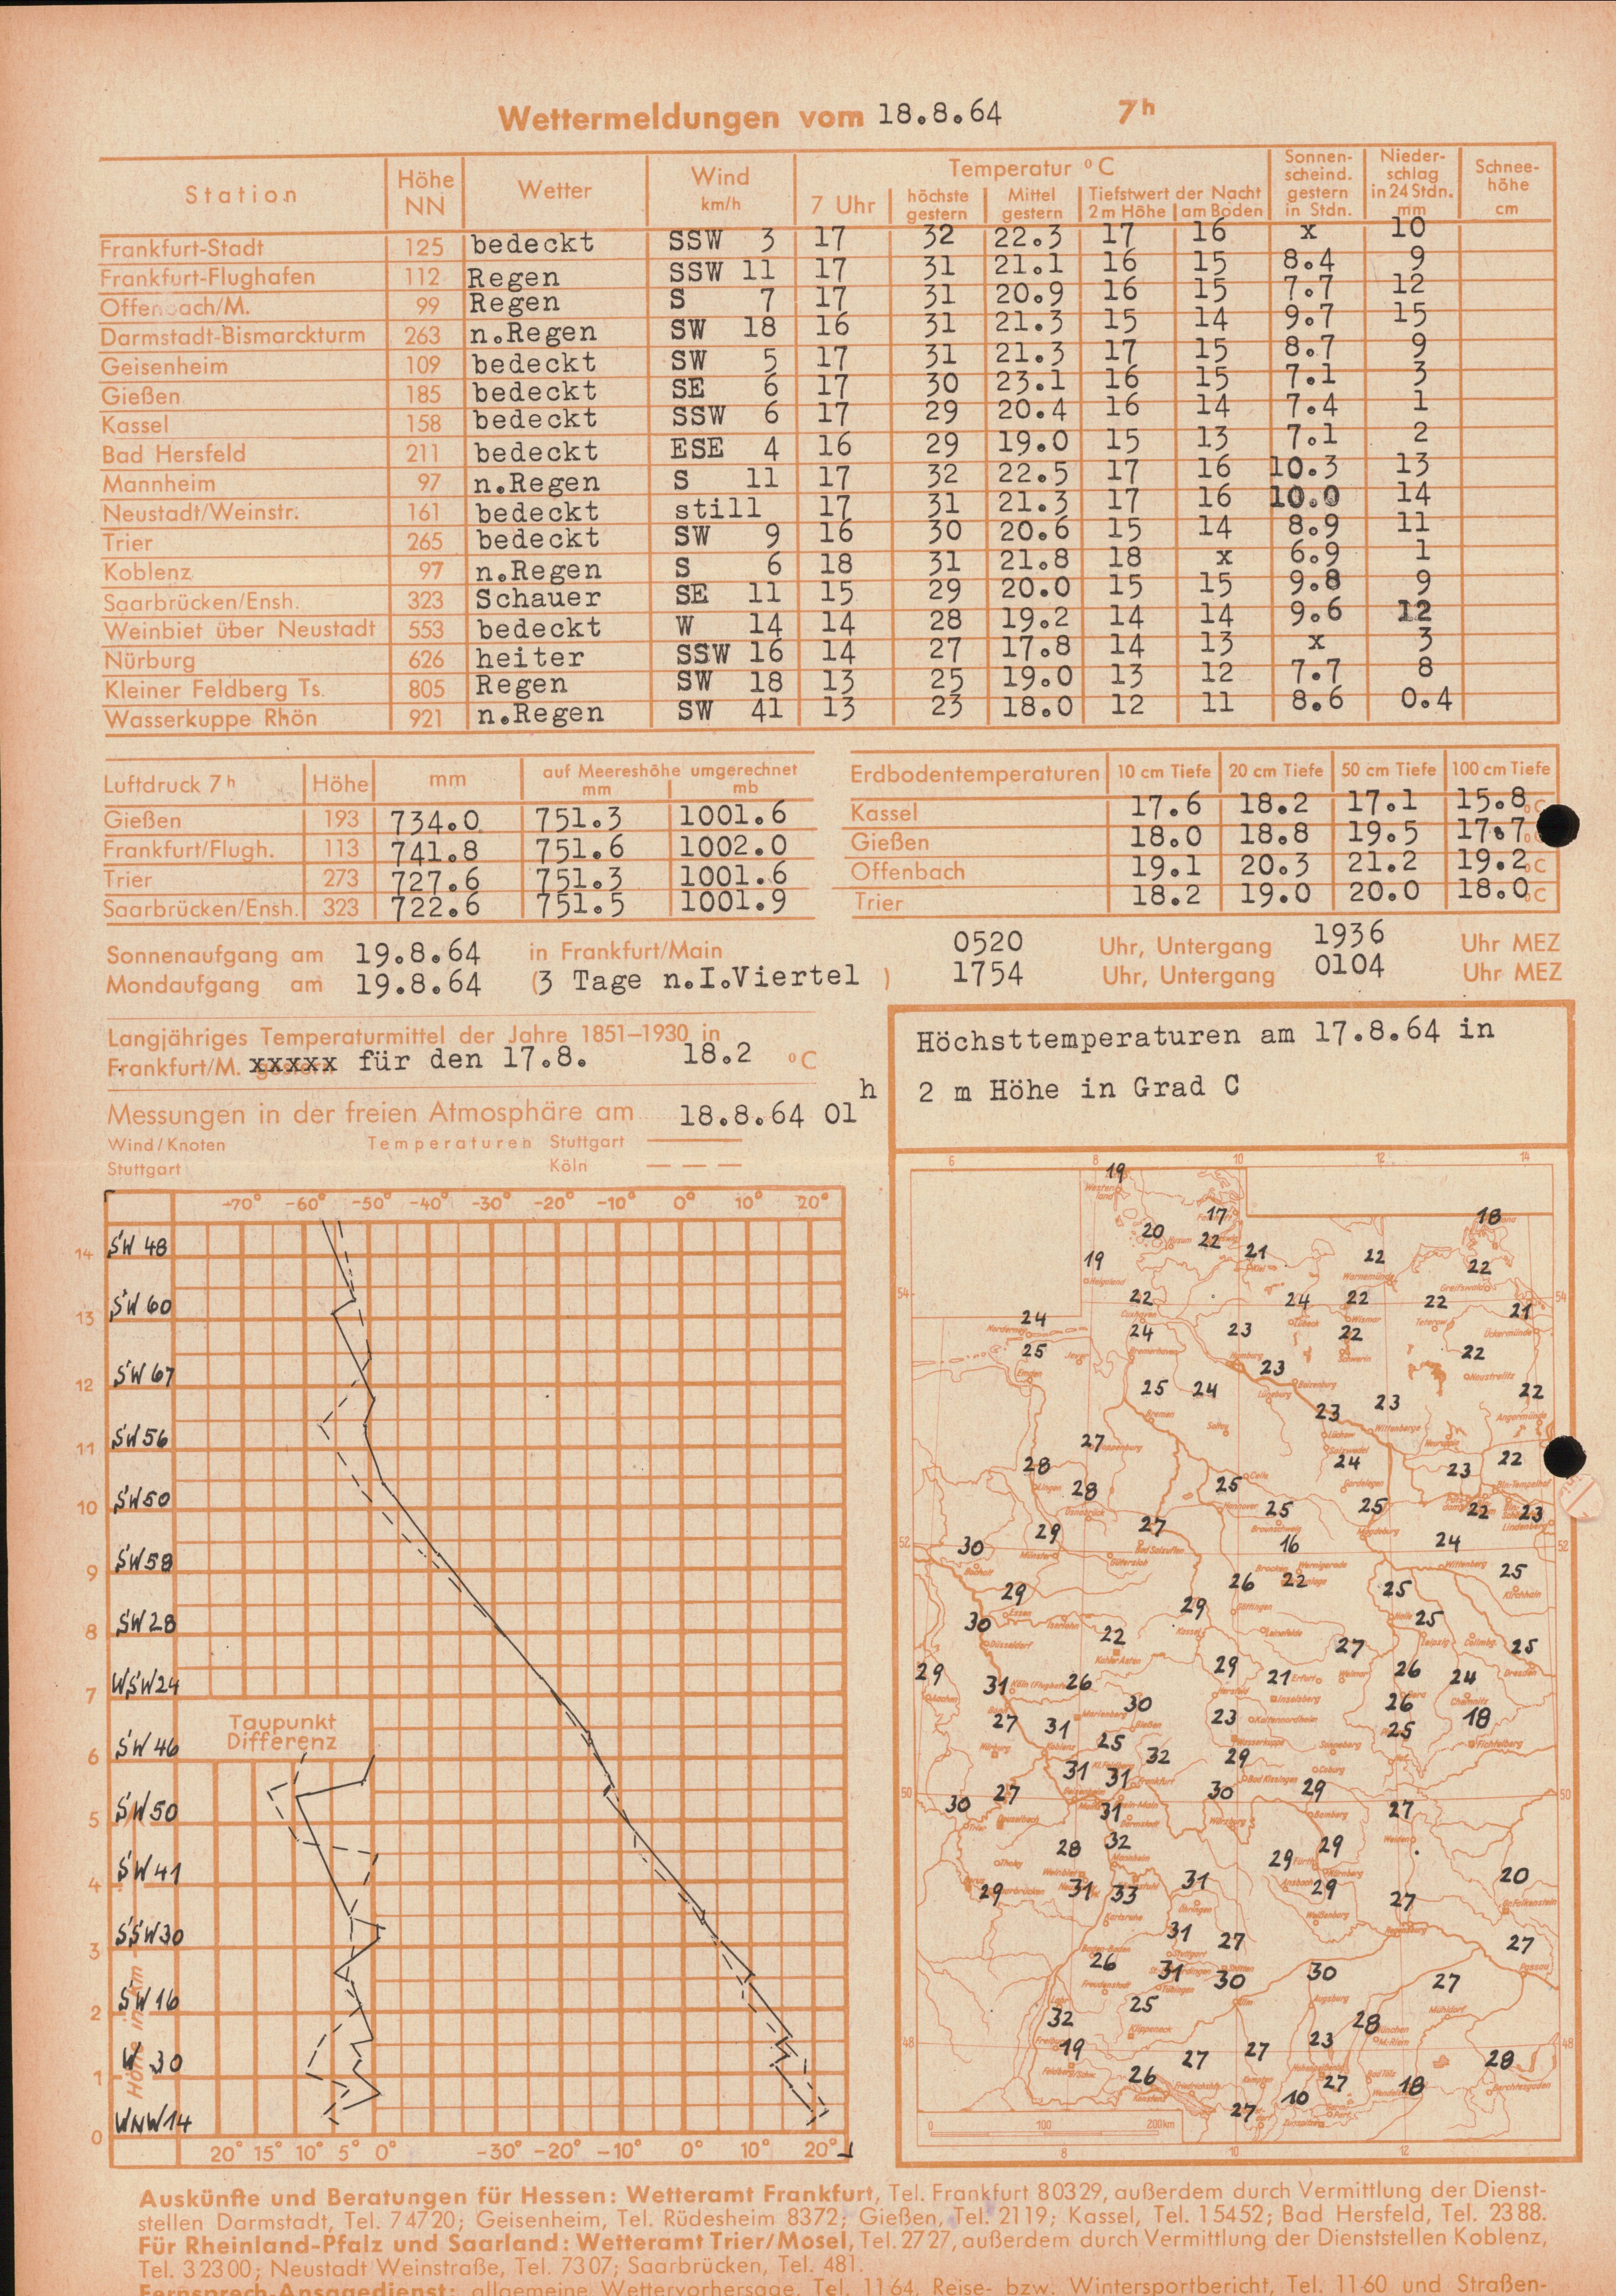 Wettermeldungen vom 18.8.64 7h
Station Höhe NN Wetter Wind km/h Temperatur °C Sonnen-scheind. gestern in Stdn. Nieder-schlag in 24 Stdn. mm Schnee-höhe cm
7 Uhr höchste gestern Mittel gestern Tiefstwert der Nacht 2m Höhe am Boden
Frankfurt-Stadt 125 bedeckt SSW 3 17 32 22.3 17 16 x 10
Frankfurt-Flughafen 112 Regen SSW 11 17 31 21.1 16 15 8.4 9
Offenbach/M. 99 Regen S 7 17 31 20.9 16 15 7.7 12
Darmstadt-Bismarckturm 263 n.Regen SW 18 16 31 21.3 15 14 9.7 15
Geisenheim 109 bedeckt SW 5 17 31 21.3 17 15 8.7 9
Gießen 185 bedeckt SE 6 17 30 23.1 16 15 7.1 3
Kassel 158 bedeckt SSW 6 17 29 20.4 16 14 7.4 1
Bad Hersfeld 211 bedeckt ESE 4 16 29 19.0 15 13 7.1 2
Mannheim 97 n.Regen S 11 17 32 22.5 17 16 10.3 13
Neustadt/Weinstr. 161 bedeckt still 17 31 21.3 17 16 10.0 14
Trier 265 bedeckt SW 9 16 30 20.6 15 14 8.9 11
Koblenz 97 n.Regen S 6 18 31 21.8 18 x 6.9 1
Saarbrücken/Ensh. 323 Schauer SE 11 15 29 20.0 15 15 9.8 9
Weinbiet über Neustadt 553 bedeckt W 14 14 28 19.2 14 14 9.6 12
Nürburg 626 heiter SSW 16 14 27 17.8 14 13 x 3
Kleiner Feldberg Ts. 805 Regen SW 18 13 25 19.0 13 12 7.7 8
Wasserkuppe Rhön 921 n.Regen SW 41 13 23 18.0 12 11 8.6 0.4
Luftdruck 7h Höhe mm auf Meereshöhe umgerechnet mm mb
Gießen 193 734.0 751.3 1001.6
Frankfurt/Flugh. 113 741.8 751.6 1002.0
Trier 273 727.6 751.3 1001.6
Saarbrücken/Ensh. 323 722.6 751.5 1001.9
Erdbodentemperaturen 10 cm Tiefe 20 cm Tiefe 50 cm Tiefe 100 cm Tiefe
Kassel 17.6 18.2 17.1 15.8 °C
Gießen 18.0 18.8 19.5 17.7 °C
Offenbach 19.1 20.3 21.2 19.2 °C
Trier 18.2 19.0 20.0 18.0 °C
Sonnenaufgang am 19.8.64 in Frankfurt/Main 0520 Uhr, Untergang 1936 Uhr MEZ
Mondaufgang am 19.8.64 (3 Tage n.I.Viertel ) 1754 Uhr, Untergang 0104 Uhr MEZ
Langjähriges Temperaturmittel der Jahre 1851–1930 in
Frankfurt/M. xxxxx für den 17.8. 18.2 °C
Messungen in der freien Atmosphäre am 18.8.64 01h
Wind/Knoten Temperaturen Stuttgart
Stuttgart Köln
-70° -60° -50° -40° -30° -20° -10° 0° 10° 20°
14 SW 48
13 SW 60
12 SW 67
11 SW 56
10 SW 50
9 SW 58
8 SW 28
7 WSW 24
Taupunkt
Differenz
6 SW 46
5 SW 50
4 SW 41
3 SSW 30
2 SW 16
1 W 30
0 WNW 14
Höhe in km
20° 15° 10° 5° 0° -30° -20° -10° 0° 10° 20°
Höchsttemperaturen am 17.8.64 in
2 m Höhe in Grad C
6 8 10 12 14
19
17 18
20 22 21 22
19 22
54 22 24 22 22 21 54
24 24 23 22
25 23 22
25 24 23 23 22
27 24 22
28 28 25 23
25 25 22 23
29 27 16 24
52 30 52
29 26 22 25 25
30 29 25
22 27 25
29 31 26 29 21 26 24
30 26
27 31 23 25 18
25 32 29
31 31
50 30 27 30 29 50
31 27
28 32 29 29
29 31 33 31 29 27 20
31 27 27
26 31 30 30 27
25
32 28
48 19 27 27 23 28 48
26 27 18
27 10
0 100 200km
8 10 12
Auskünfte und Beratungen für Hessen: Wetteramt Frankfurt, Tel. Frankfurt 80329, außerdem durch Vermittlung der Dienst-
stellen Darmstadt, Tel. 74720; Geisenheim, Tel. Rüdesheim 8372; Gießen, Tel. 2119; Kassel, Tel. 15452; Bad Hersfeld, Tel. 2388.
Für Rheinland-Pfalz und Saarland: Wetteramt Trier/Mosel, Tel. 2727, außerdem durch Vermittlung der Dienststellen Koblenz,
Tel. 32300; Neustadt Weinstraße, Tel. 7307; Saarbrücken, Tel. 481.
Fernsprech-Ansagedienst: allgemeine Wettervorhersage, Tel. 1164, Reise- bzw. Wintersportbericht, Tel. 1160 und Straßen-